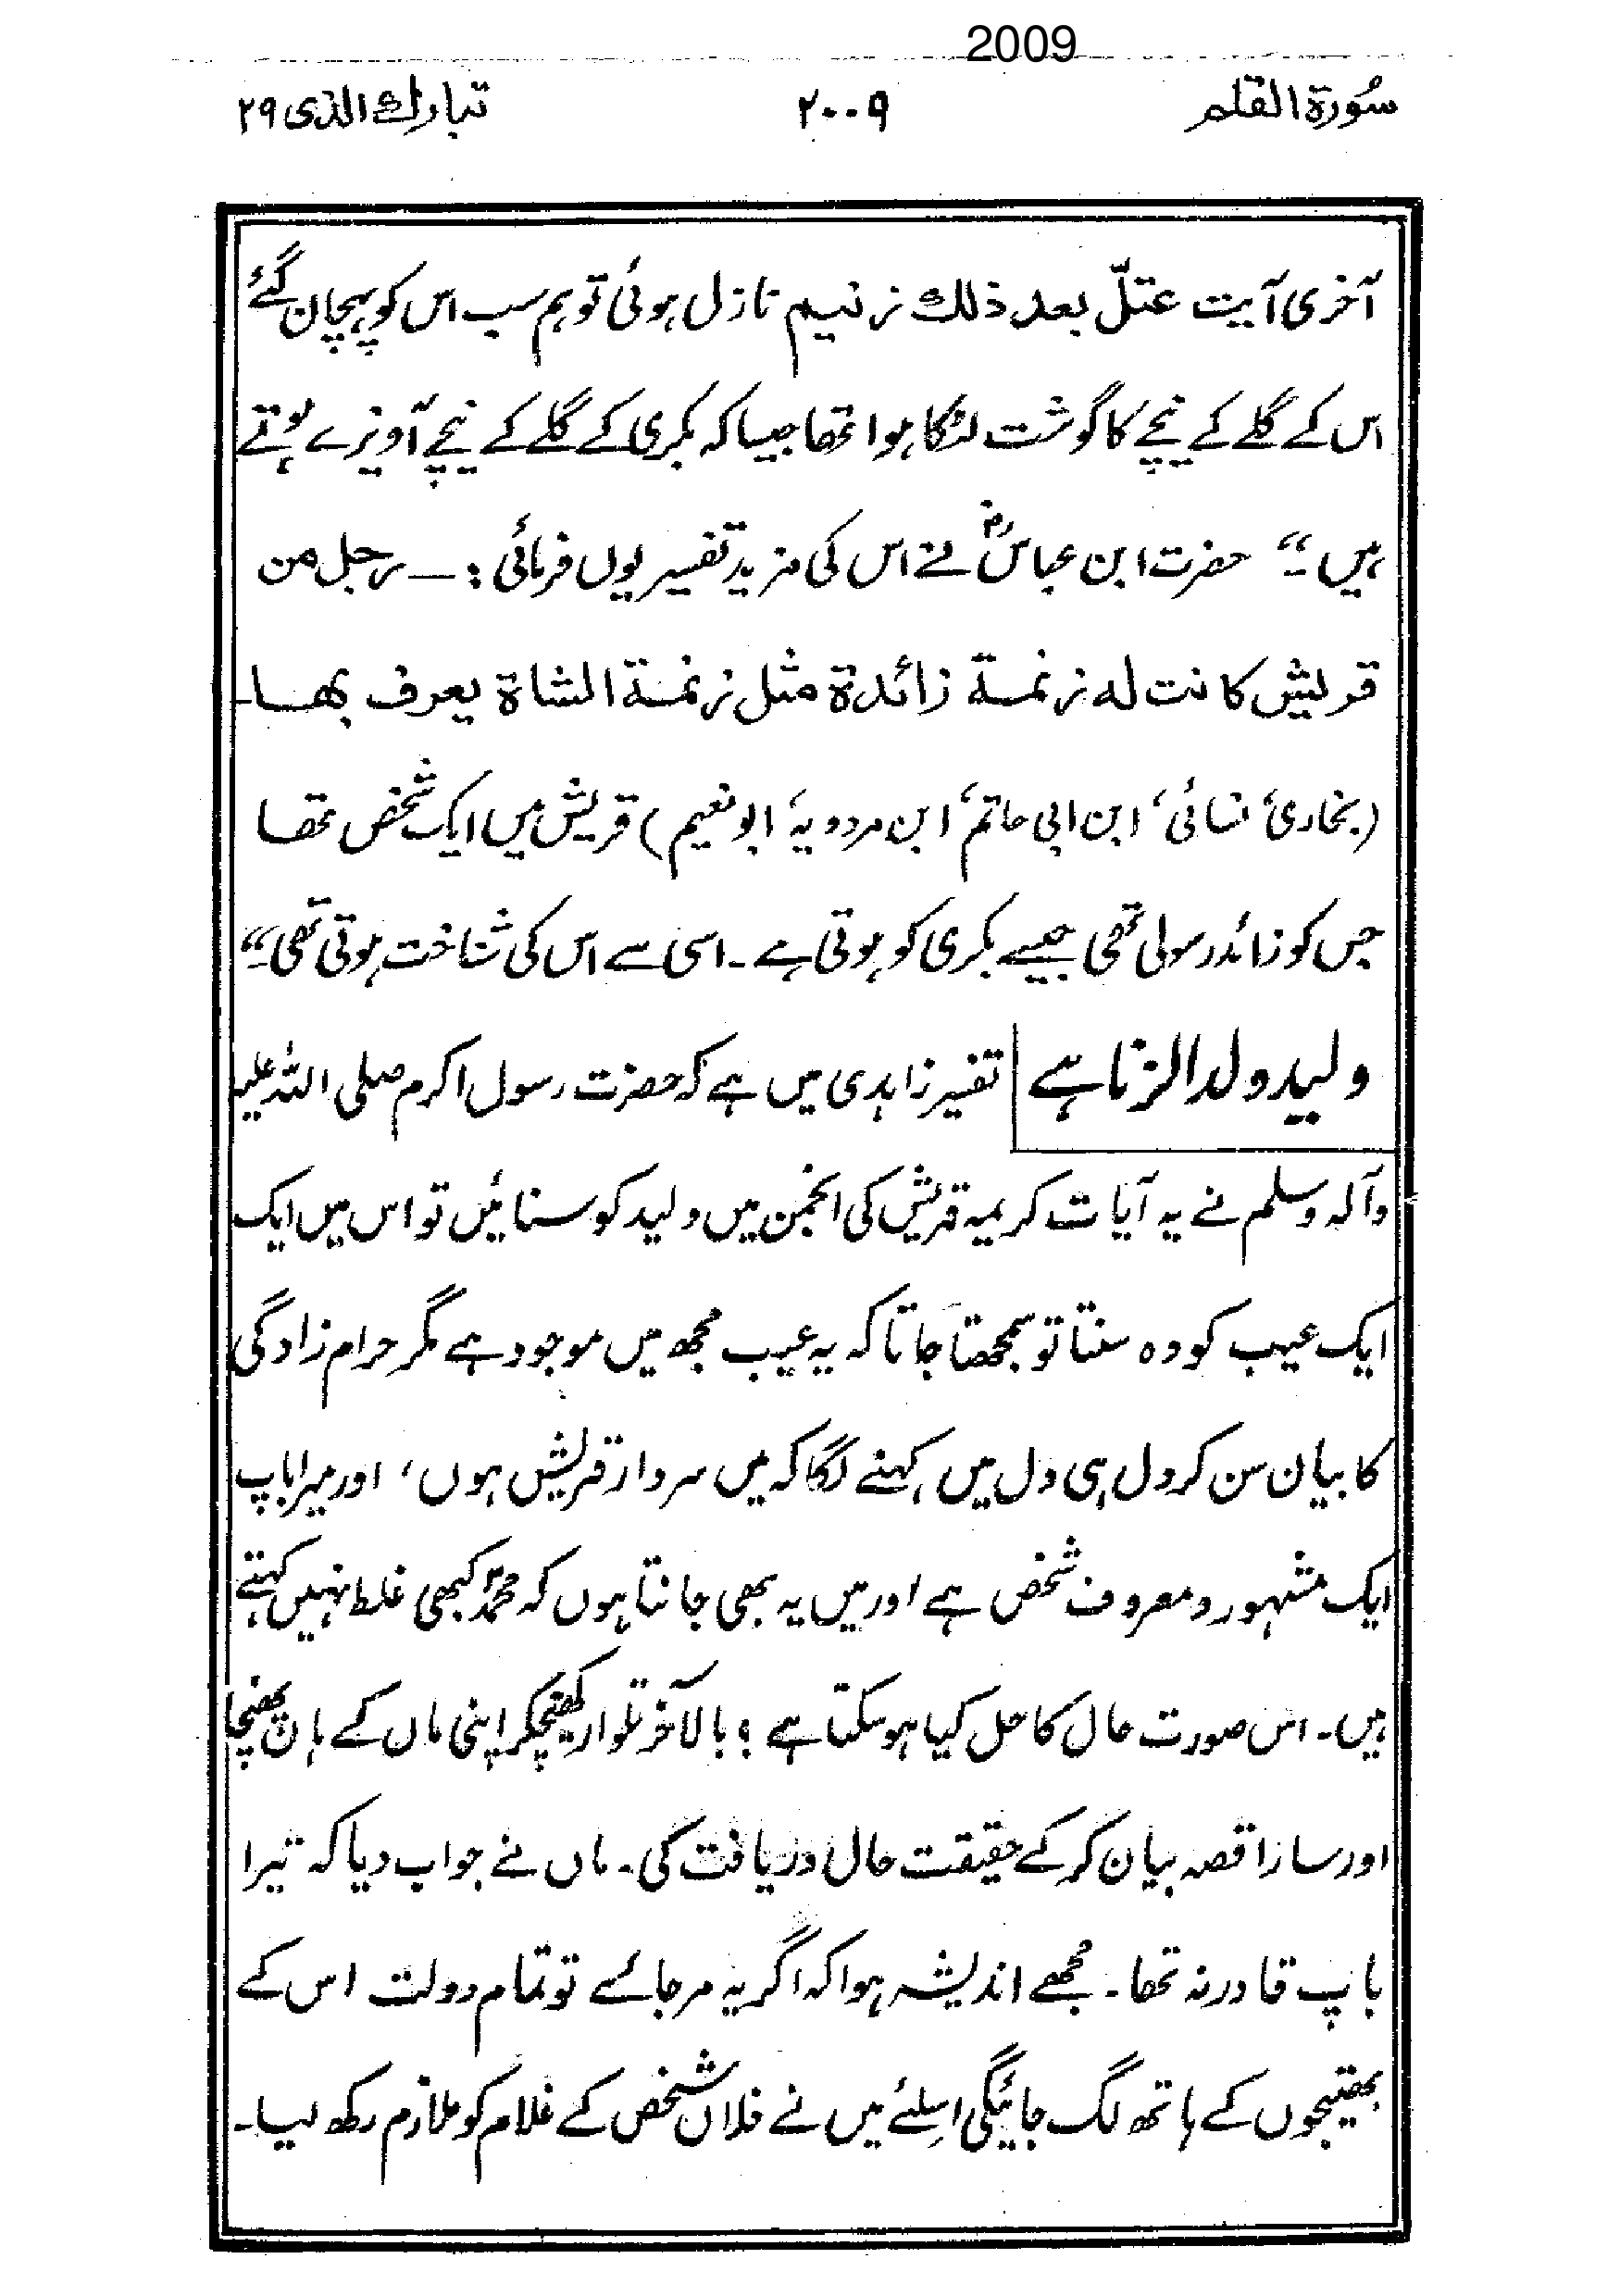 2009
سُورة القلم ۲۰۰۹ تبارك الذی ۲۹
آخری آیت عتلّ بعد ذلك زنیم نازل ہوئی تو ہم سب اس کو پہچان گئے
اس کے گلے کے نیچے کا گوشت لٹکا ہوا تھا جیسا کہ بکری کے گلے کے نیچے آویزے ہوتے
ہیں۔“ حضرت ابن عباسؓ نے اس کی مزید تفسیر یوں فرمائی :۔ رجل من
قریش کانت له زنمة زائدة مثل زنمة الشاة یعرف بھا۔
(بخاری، نسائی، ابن ابی حاتم، ابن مردویہ، ابو نعیم) قریش میں ایک شخص تھا
جس کو زائد رسولی تھی جیسے بکری کو ہوتی ہے۔ اسی سے اس کی شناخت ہوتی تھی۔“
ولید ولد الزنا ہے تفسیر زاہدی میں ہے کہ حضرت رسول اکرم صلی اللہ علیہ
وآلہ وسلم نے یہ آیات کریمہ قریش کی انجمن میں ولید کو سنائیں تو اس میں ایک
ایک عیب کو وہ سنتا تو سمجھتا جاتا کہ یہ عیب مجھ میں موجود ہے مگر حرام زادگی
کا بیان سن کر دل ہی دل میں کہنے لگا کہ میں سردار قریش ہوں، اور میرا باپ
ایک مشہور و معروف شخص ہے اور میں یہ بھی جانتا ہوں کہ محمدؐ کبھی غلط نہیں کہتے
ہیں۔ اس صورت حال کا حل کیا ہو سکتا ہے ؟ بالآخر تلوار کھینچکر اپنی ماں کے ہاں پہنچا
اور سارا قصہ بیان کر کے حقیقت حال دریافت کی۔ ماں نے جواب دیا کہ تیرا
باپ قادر نہ تھا۔ مجھے اندیشہ ہوا کہ اگر یہ مر جائے تو تمام دولت اس کے
بھتیجوں کے ہاتھ لگ جائیگی اسلئے میں نے فلاں شخص کے غلام کو ملازم رکھ لیا۔